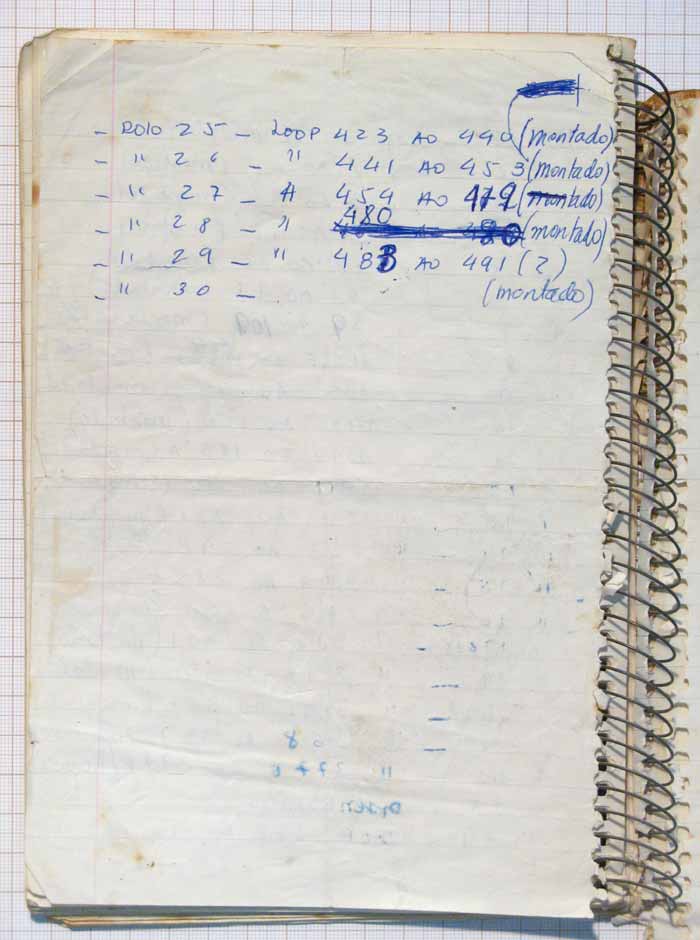 - ROLO 25 - LOOP 423 AO 440 (montado)
- " 26 - " 441 AO 453 (montado)
- " 27 - " 454 AO 479 (montado)
- " 28 - " 480 (montado)
- " 29 - " 483 AO 491 (?)
- " 30 - (montado)